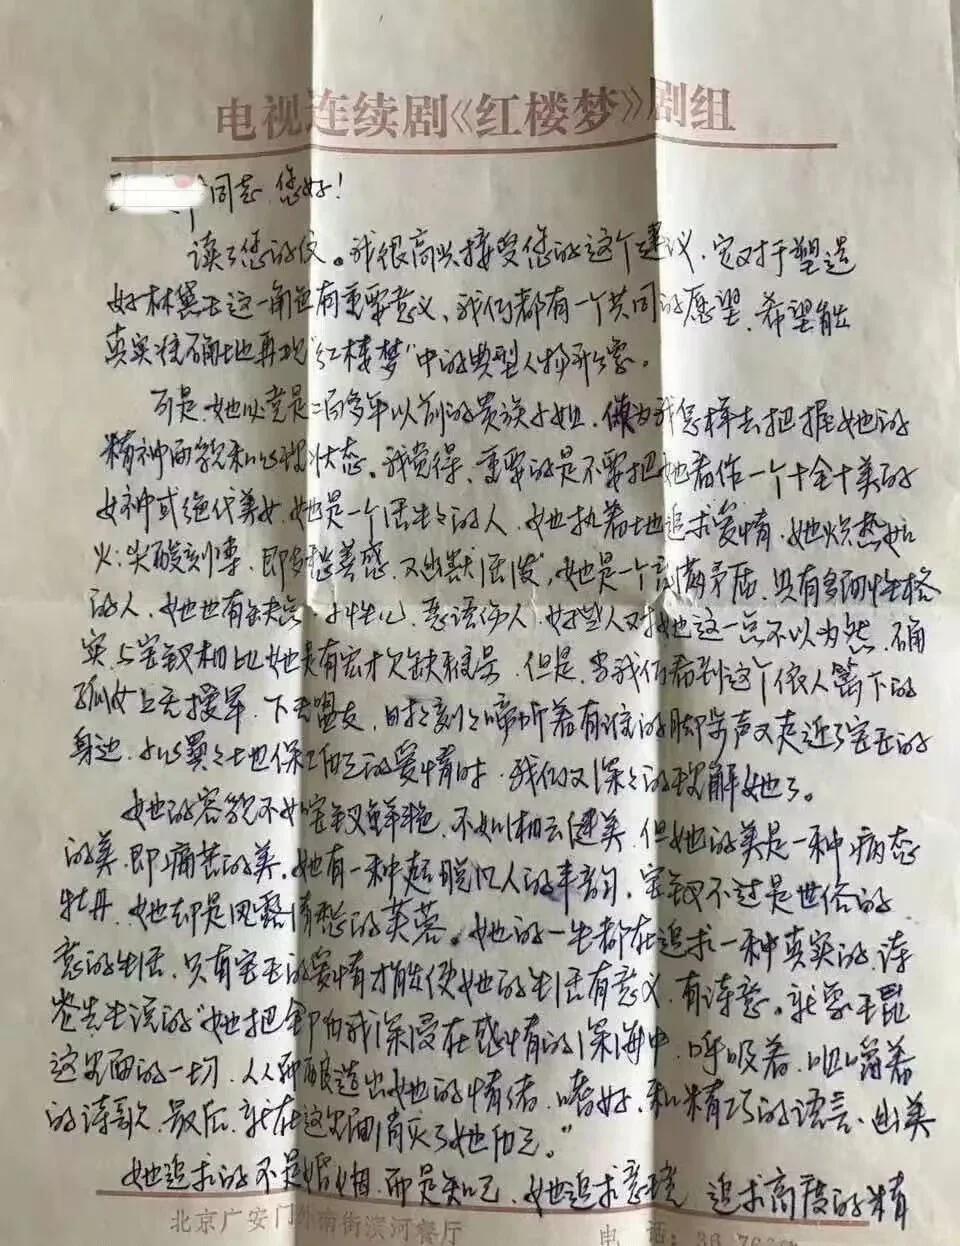 电视连续剧《红楼梦》剧组
同志 您好!
读了您的信。我很高兴接受您的这个建议,它对于塑造
好林黛玉这一角色有重要意义、我们都有一个共同的愿望、希望能
真实准确地再现"红楼梦"中的典型人物形象。
可是,她必竟是二百多年以前的贵族小姐,做为我怎样去把握她的
精神面貌和心理状态。我觉得,重要的是不要把她看作一个十全十美的
女神或绝代美女,她是一个活生生的人,她执着地追求爱情,她炽热如
火;尖酸刻薄,即多愁善感,又幽默活泼,她是一个充满矛盾,具有多面性格
的人,她也有缺点,小性儿,恶语伤人,好些人对她这一点不以为然,确
实与宝钗相比她是有些才欠缺,但是,当我们看到这个依人篱下的
孤女上无援军,下无盟友,时时刻刻啼听着有谁的脚步声又走近了宝玉的
身边,小心翼翼地保卫自己的爱情时,我们又深深的理解她了。
她的容貌不如宝钗鲜艳,不如湘云健美,但她的美是一种病态
的美,即痛苦的美。她有一种超脱凡人的丰韵,宝钗不过是世俗的
牡丹,她却是风露清愁的芙蓉。她的一生都在追求一种真实的,诗
意的生活,只有宝玉的爱情才能使她的生活有意义,有诗意。就象王昆
仑先生说的"她把全部自我沉浸在感情的深海中,呼吸着,咀嚼着
这里面的一切,从而酿造出她的情绪,嗜好,和精巧的语言、幽美
的诗歌,最后,就在这里面消灭了她自己。"
她追求的不是婚姻,而是知己,她追求意境,追求高度的精
北京广安门外南街滨河餐厅 电 话:36.763